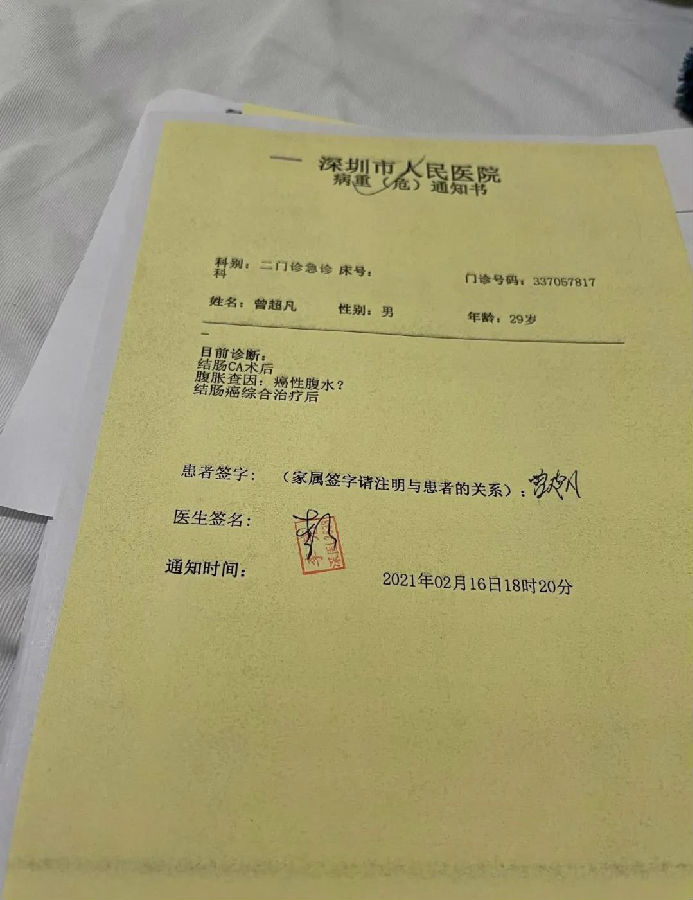 深圳市人民医院
病重（危）通知书
科别：二门诊急诊科 床号： 门诊号码：337057817
姓名：曾超凡 性别：男 年龄：29岁
目前诊断：
结肠CA术后
腹胀查因：癌性腹水？
结肠癌综合治疗后
患者签字：（家属签字请注明与患者的关系）：曾超凡
医生签名：
通知时间： 2021年02月16日18时20分